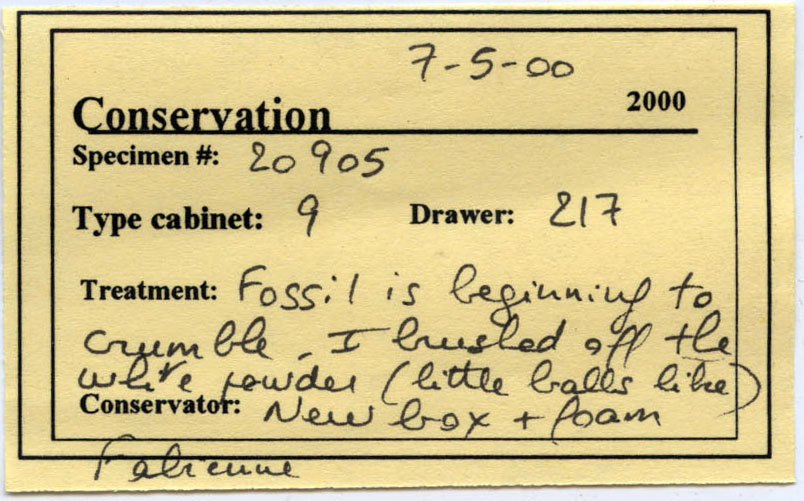 7-5-00
Conservation 2000
Specimen #: 20905
Type cabinet: 9 Drawer: 217
Treatment: Fossil is beginning to
crumble. I brushed off the
white powder (little balls like)
Conservator: New box + foam
Fabienne